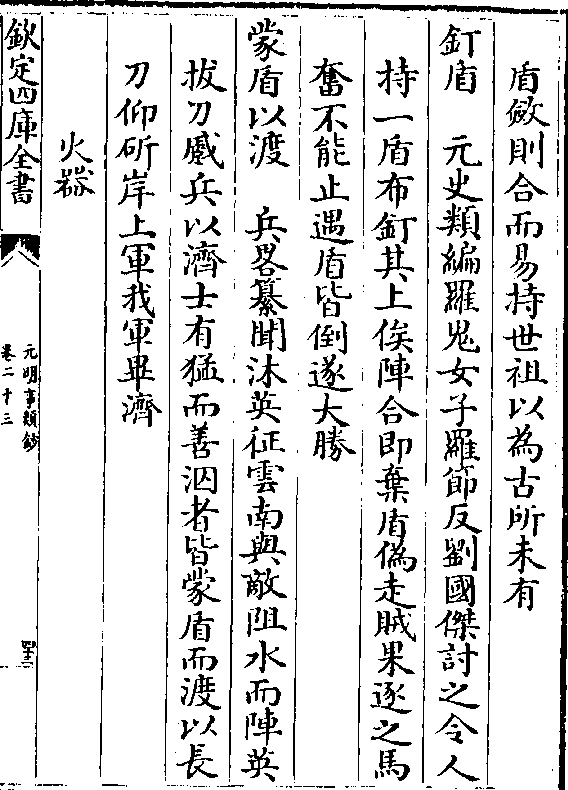 盾斂則合而易持世祖以為古所未有
釘盾　元史類編羅鬼女子羅節反劉國傑討之令人
持一盾布釘其上俟陣合即棄盾偽走賊果逐之馬
奮不能止遇盾皆倒遂大勝
蒙盾以渡　兵畧纂聞沐英征雲南與敵阻水而陣英
拔刀戚兵以濟士有猛而善泅者皆蒙盾而渡以長
刀仰斫岸上軍我軍畢濟
火器
欽定四庫全書
元明事類鈔
卷二十三